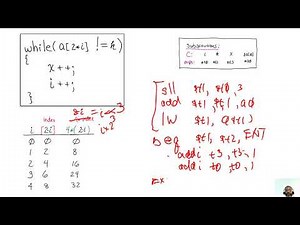 while(a[2*i] != k)
{
x++;
i++;
}
8i = i<<3
i*2^3
index
i [2i] 4*(2i)
0 0 0
1 2 8
2 4 16
3 6 24
4 8 32
C: i k x
sll $t1, $t0, 3
add $t1, $t1, a0
lw $t1, 0($t1)
beq $t1, $t2, EXIT
addi t3, t3, 1
addi t0, t0, 1
Ex